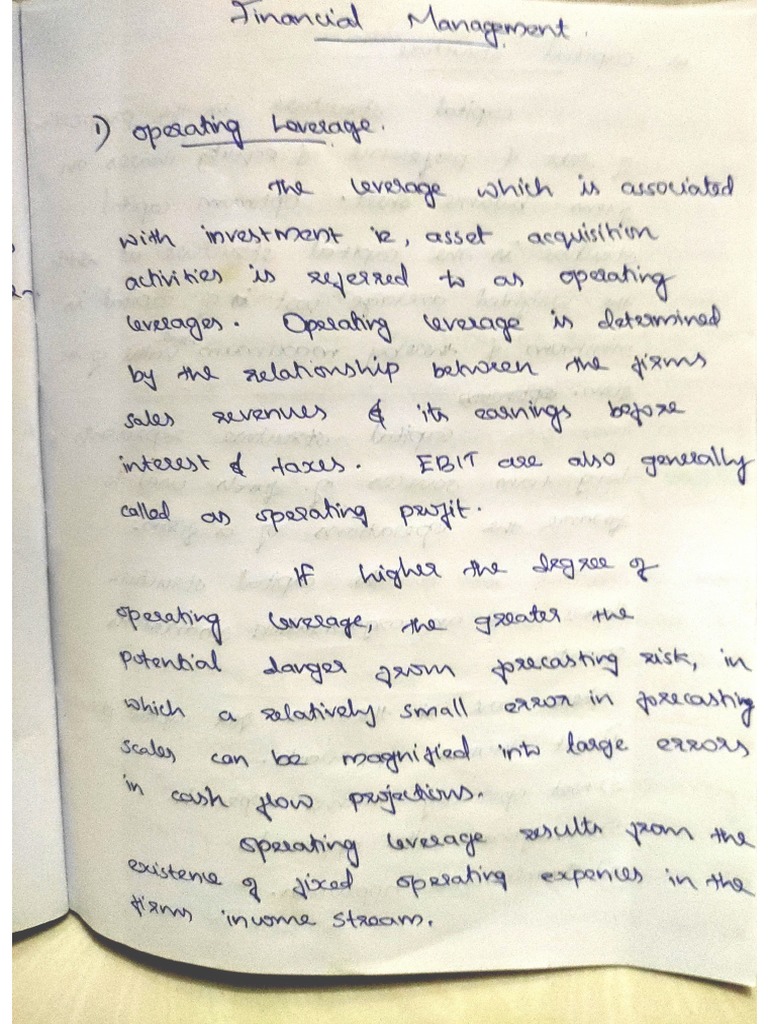 Financial Management.
1) Operating Leverage.
The leverage which is associated
with investment ie, asset acquisition
activities is referred to as operating
leverages. Operating leverage is determined
by the relationship between the firms
sales revenues & its earnings before
interest & taxes. EBIT are also generally
called as operating profit.
If higher the degree of
operating leverage, the greater the
potential danger from forecasting risk, in
which a relatively small error in forecasting
scales can be magnified into large errors
in cash flow projections.
Operating leverage results from the
existence of fixed operating expences in the
firms income stream.